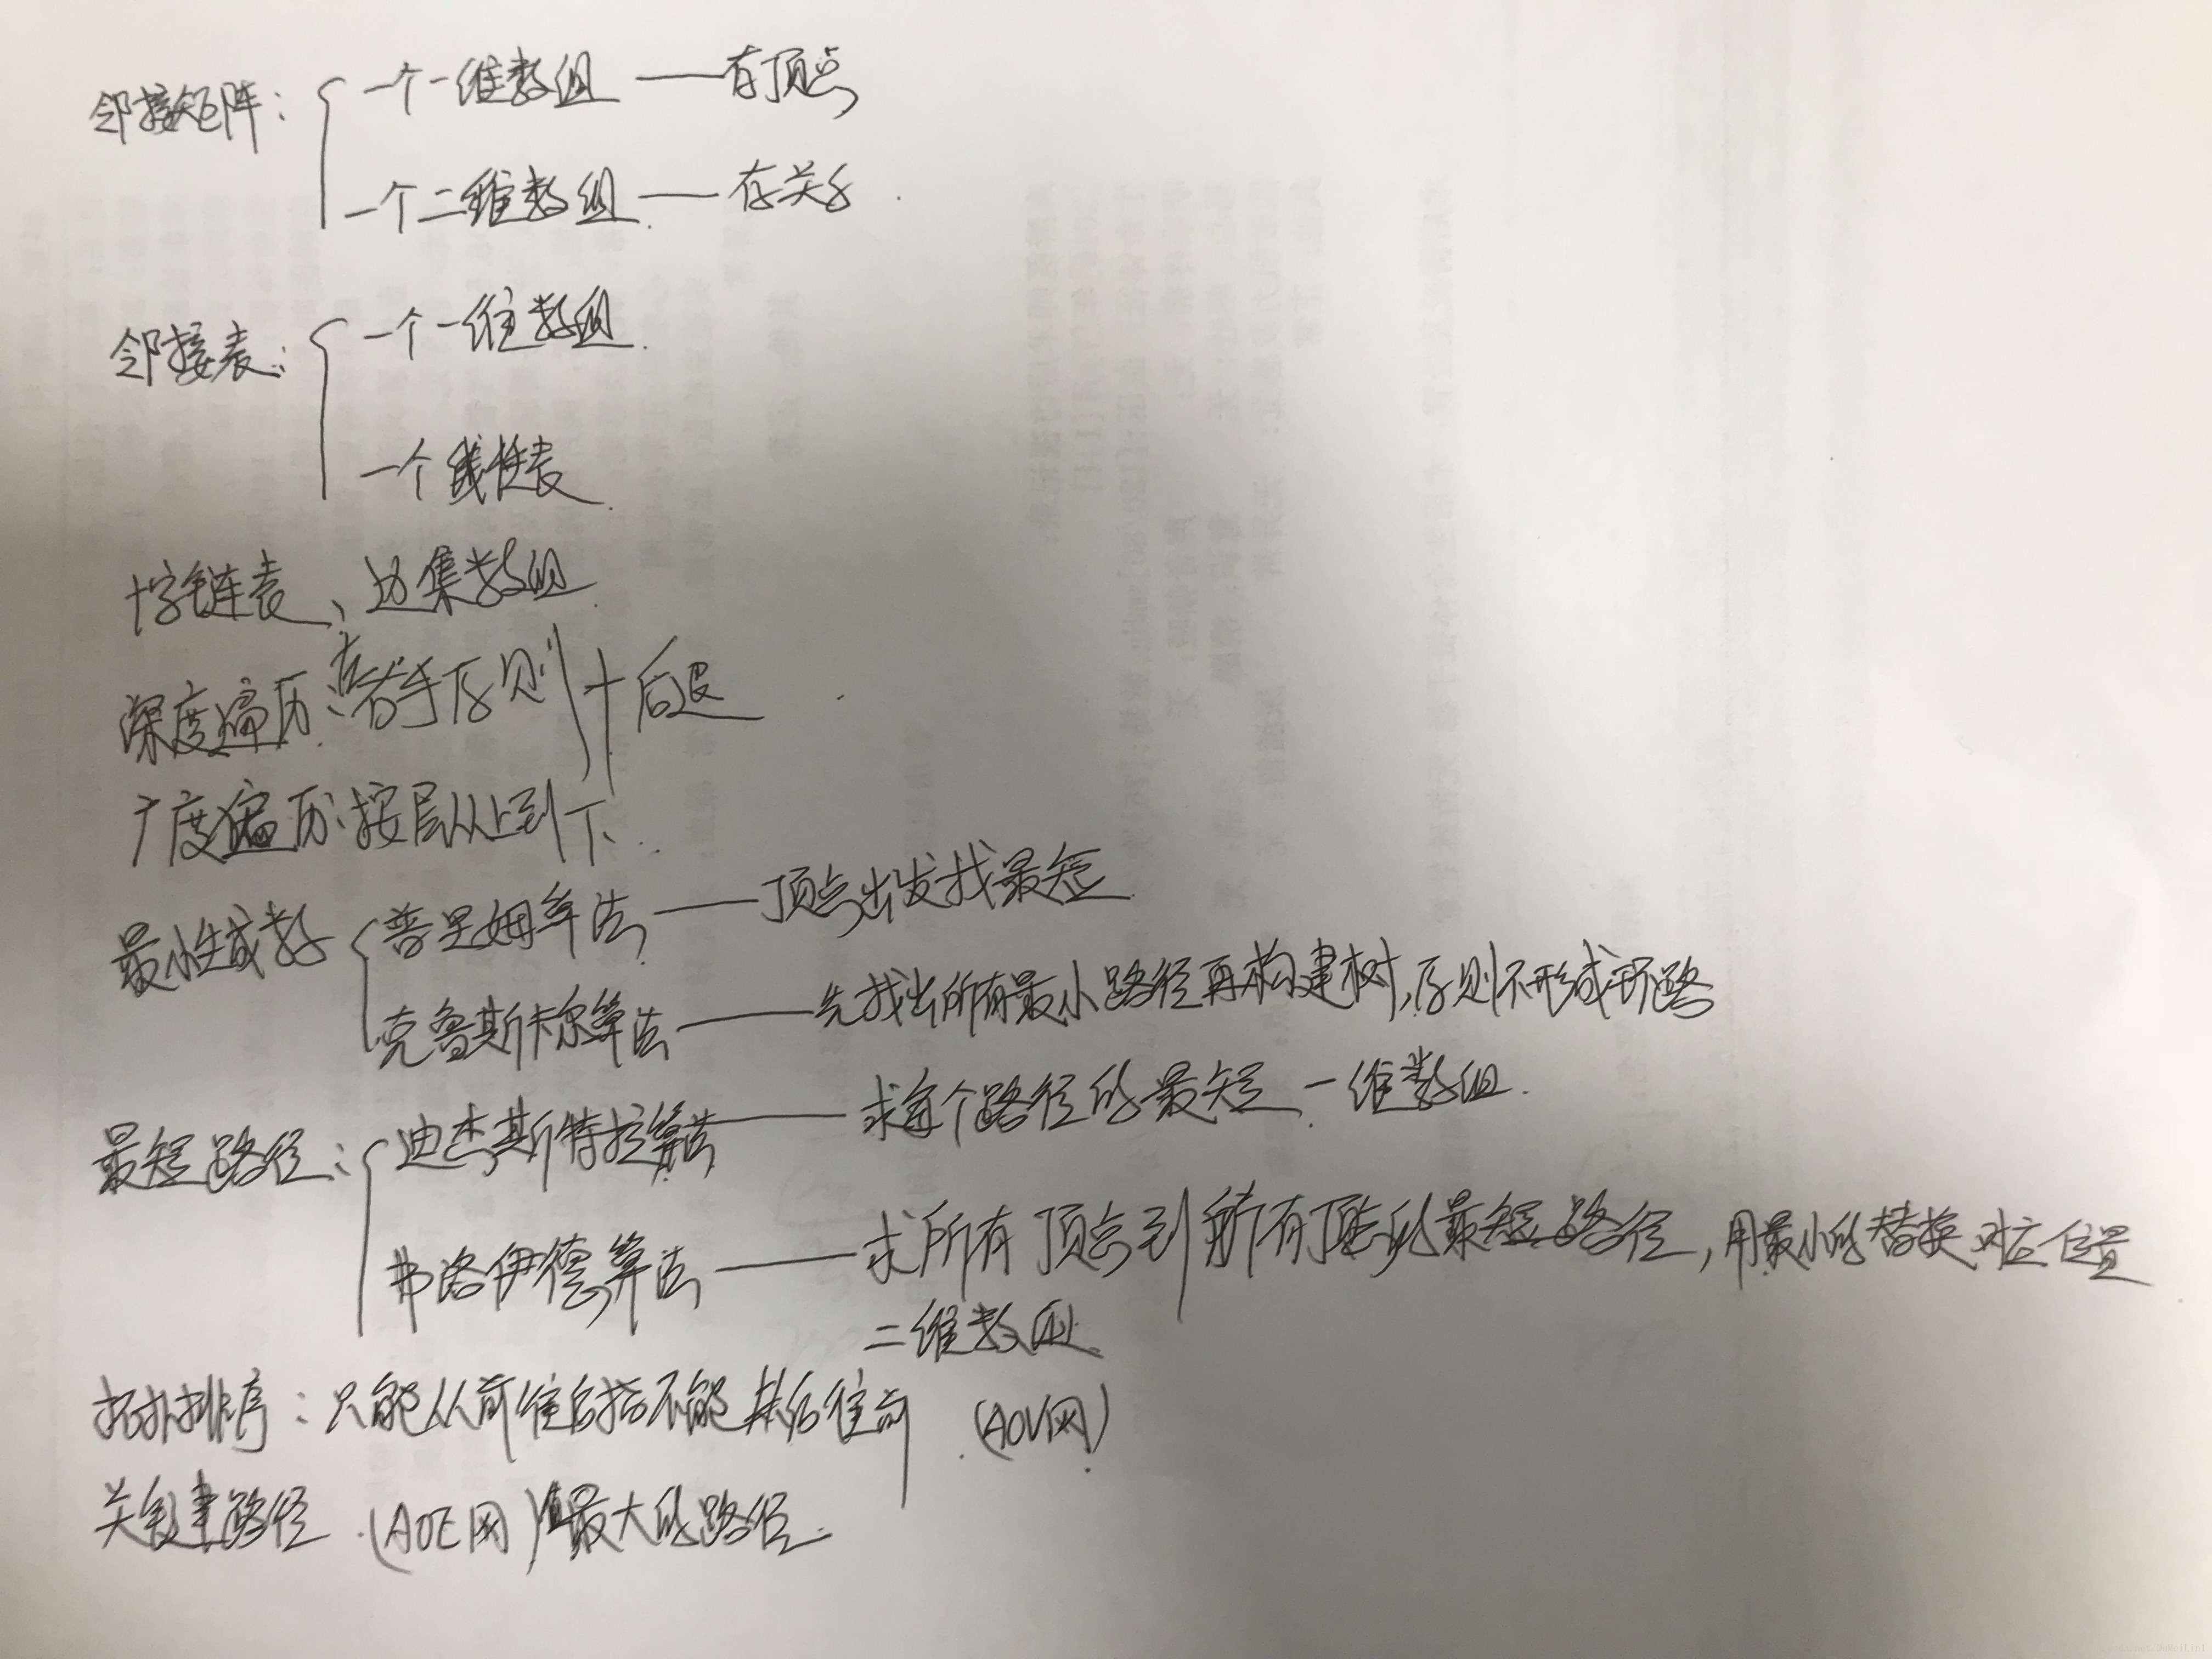 邻接矩阵: 一个一维数组 —— 存顶点
一个二维数组 —— 存关系
邻接表: 一个一维数组
一个线性表
十字链表、边集数组
深度遍历: 右手原则 + 后退
广度遍历: 按层从上到下
最小生成树 普里姆算法 —— 顶点出发找最短
克鲁斯卡尔算法 —— 先找出所有最小路径再构建树,原则不形成环路
最短路径: 迪杰斯特拉算法 —— 求每个路径的最短 一维数组
弗洛伊德算法 —— 求所有顶点到所有顶点的最短路径,用最小的替换对应位置
二维数组
拓扑排序: 只能从前往后指不能从后往前 (AOV网)
关键路径 (AOE网) 值最大的路径